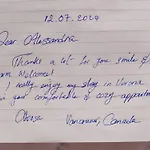 12.07.2024
Dear Alessandra
Thanks a lot for your smile &
warm welcome!
I really enjoy my stay in Verona
in your comfortable & cozy appartment
Vancouver, Canada